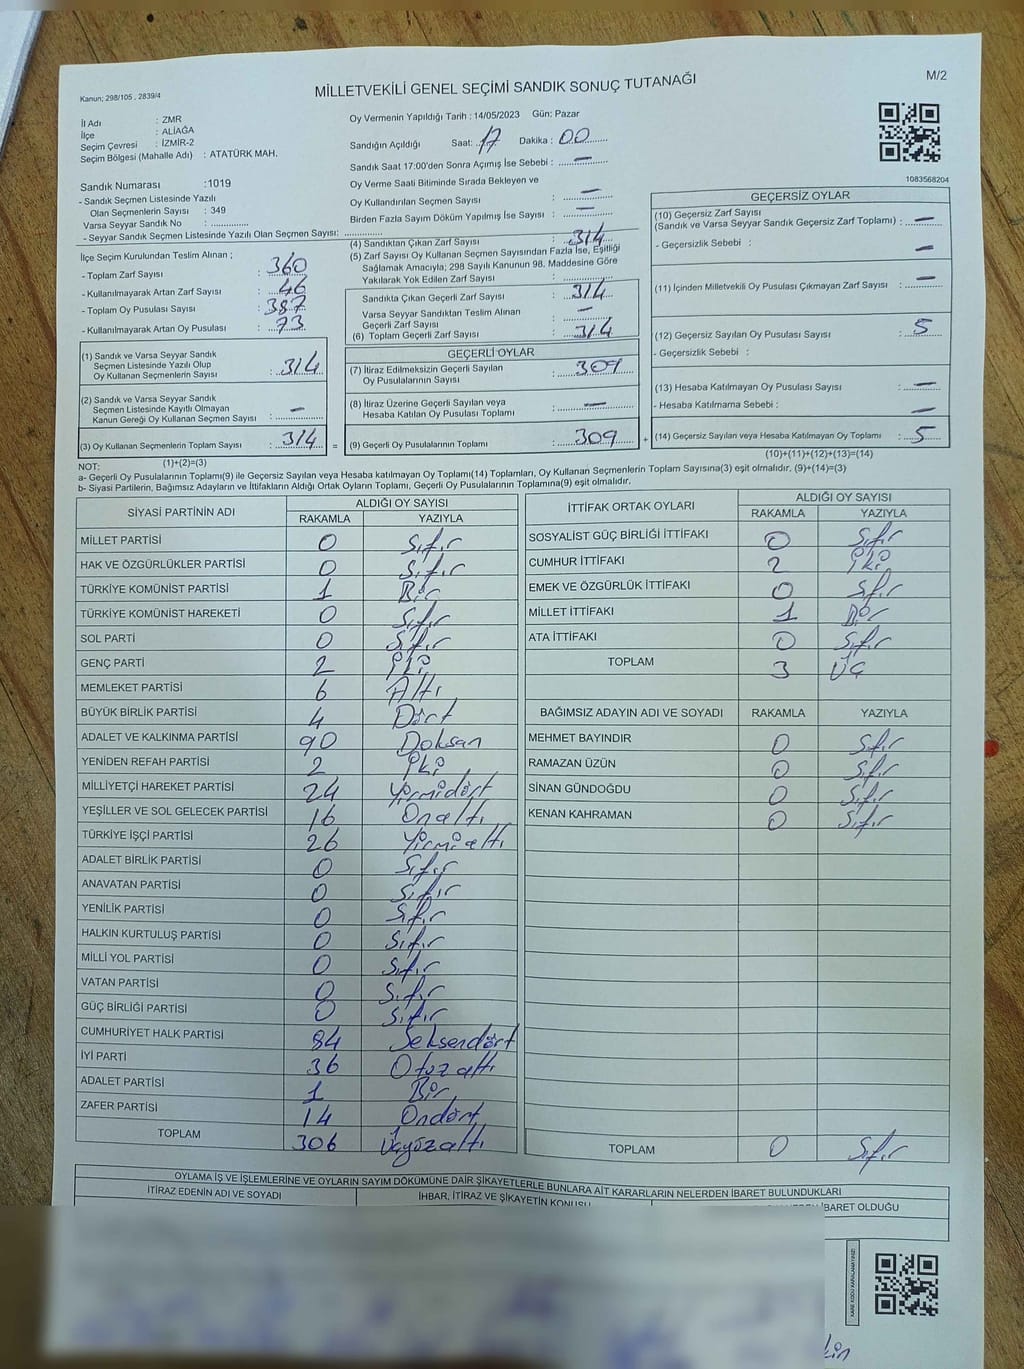 Kanun; 298/105 , 2839/4
MİLLETVEKİLİ GENEL SEÇİMİ SANDIK SONUÇ TUTANAĞI
M/2
İl Adı : ZMR
İlçe : ALİAĞA
Seçim Çevresi : İZMİR-2
Seçim Bölgesi (Mahalle Adı) : ATATÜRK MAH.
Oy Vermenin Yapıldığı Tarih : 14/05/2023 Gün: Pazar
Sandığın Açıldığı Saat: 17 Dakika : 00
Sandık Saat 17:00'den Sonra Açımış İse Sebebi : —
Oy Verme Saati Bitiminde Sırada Bekleyen ve
Oy Kullandırılan Seçmen Sayısı : —
Birden Fazla Sayım Döküm Yapılmış İse Sayısı : —
1083568204
Sandık Numarası :1019
- Sandık Seçmen Listesinde Yazılı
Olan Seçmenlerin Sayısı : 349
Varsa Seyyar Sandık No :
- Seyyar Sandık Seçmen Listesinde Yazılı Olan Seçmen Sayısı:
İlçe Seçim Kurulundan Teslim Alınan ;
- Toplam Zarf Sayısı : 360
- Kullanılmayarak Artan Zarf Sayısı : 46
- Toplam Oy Pusulası Sayısı : 387
- Kullanılmayarak Artan Oy Pusulası : 73
(1) Sandık ve Varsa Seyyar Sandık
Seçmen Listesinde Yazılı Olup
Oy Kullanan Seçmenlerin Sayısı : 314
(2) Sandık ve Varsa Seyyar Sandık
Seçmen Listesinde Kayıtlı Olmayan
Kanun Gereği Oy Kullanan Seçmen Sayısı : —
(3) Oy Kullanan Seçmenlerin Toplam Sayısı : 314 =
(1)+(2)=(3)
(4) Sandıktan Çıkan Zarf Sayısı : 314
(5) Zarf Sayısı Oy Kullanan Seçmen Sayısından Fazla İse, Eşitliği
Sağlamak Amacıyla; 298 Sayılı Kanunun 98. Maddesine Göre
Yakılarak Yok Edilen Zarf Sayısı :
Sandıkta Çıkan Geçerli Zarf Sayısı : 314
Varsa Seyyar Sandıktan Teslim Alınan
Geçerli Zarf Sayısı : —
(6) Toplam Geçerli Zarf Sayısı : 314
GEÇERLİ OYLAR
(7) İtiraz Edilmeksizin Geçerli Sayılan
Oy Pusulalarının Sayısı : 309
(8) İtiraz Üzerine Geçerli Sayılan veya
Hesaba Katılan Oy Pusulası Toplamı : —
(9) Geçerli Oy Pusulalarının Toplamı : 309 +
GEÇERSİZ OYLAR
(10) Geçersiz Zarf Sayısı
(Sandık ve Varsa Seyyar Sandık Geçersiz Zarf Toplamı) : —
- Geçersizlik Sebebi : —
(11) İçinden Milletvekili Oy Pusulası Çıkmayan Zarf Sayısı : —
(12) Geçersiz Sayılan Oy Pusulası Sayısı : 5
- Geçersizlik Sebebi :
(13) Hesaba Katılmayan Oy Pusulası Sayısı : —
- Hesaba Katılmama Sebebi : —
(14) Geçersiz Sayılan veya Hesaba Katılmayan Oy Toplamı : 5
(10)+(11)+(12)+(13)=(14)
NOT:
a- Geçerli Oy Pusulalarının Toplamı(9) ile Geçersiz Sayılan veya Hesaba katılmayan Oy Toplamı(14) Toplamları, Oy Kullanan Seçmenlerin Toplam Sayısına(3) eşit olmalıdır. (9)+(14)=(3)
b- Siyasi Partilerin, Bağımsız Adayların ve İttifakların Aldığı Ortak Oyların Toplamı, Geçerli Oy Pusulalarının Toplamına(9) eşit olmalıdır.
SİYASİ PARTİNİN ADI ALDIĞI OY SAYISI
RAKAMLA YAZIYLA
MİLLET PARTİSİ 0 Sıfır
HAK VE ÖZGÜRLÜKLER PARTİSİ 0 Sıfır
TÜRKİYE KOMÜNİST PARTİSİ 1 Bir
TÜRKİYE KOMÜNİST HAREKETİ 0 Sıfır
SOL PARTİ 0 Sıfır
GENÇ PARTİ 2 İki
MEMLEKET PARTİSİ 6 Altı
BÜYÜK BİRLİK PARTİSİ 4 Dört
ADALET VE KALKINMA PARTİSİ 90 Doksan
YENİDEN REFAH PARTİSİ 2 İki
MİLLİYETÇİ HAREKET PARTİSİ 24 Yirmidört
YEŞİLLER VE SOL GELECEK PARTİSİ 16 Onaltı
TÜRKİYE İŞÇİ PARTİSİ 26 Yirmialtı
ADALET BİRLİK PARTİSİ 0 Sıfır
ANAVATAN PARTİSİ 0 Sıfır
YENİLİK PARTİSİ 0 Sıfır
HALKIN KURTULUŞ PARTİSİ 0 Sıfır
MİLLİ YOL PARTİSİ 0 Sıfır
VATAN PARTİSİ 0 Sıfır
GÜÇ BİRLİĞİ PARTİSİ 0 Sıfır
CUMHURİYET HALK PARTİSİ 84 Seksendört
İYİ PARTİ 36 Otuzaltı
ADALET PARTİSİ 1 Bir
ZAFER PARTİSİ 14 Ondört
TOPLAM 306 Üçyüzaltı
İTTİFAK ORTAK OYLARI ALDIĞI OY SAYISI
RAKAMLA YAZIYLA
SOSYALİST GÜÇ BİRLİĞİ İTTİFAKI 0 Sıfır
CUMHUR İTTİFAKI 2 İki
EMEK VE ÖZGÜRLÜK İTTİFAKI 0 Sıfır
MİLLET İTTİFAKI 1 Bir
ATA İTTİFAKI 0 Sıfır
TOPLAM 3 Üç
BAĞIMSIZ ADAYIN ADI VE SOYADI RAKAMLA YAZIYLA
MEHMET BAYINDIR 0 Sıfır
RAMAZAN ÜZÜN 0 Sıfır
SİNAN GÜNDOĞDU 0 Sıfır
KENAN KAHRAMAN 0 Sıfır
TOPLAM 0 Sıfır
OYLAMA İŞ VE İŞLEMLERİNE VE OYLARIN SAYIM DÖKÜMÜNE DAİR ŞİKAYETLERLE BUNLARA AİT KARARLARIN NELERDEN İBARET BULUNDUKLARI
İTİRAZ EDENİN ADI VE SOYADI İHBAR, İTİRAZ VE ŞİKAYETİN KONUSU İBARET OLDUĞU